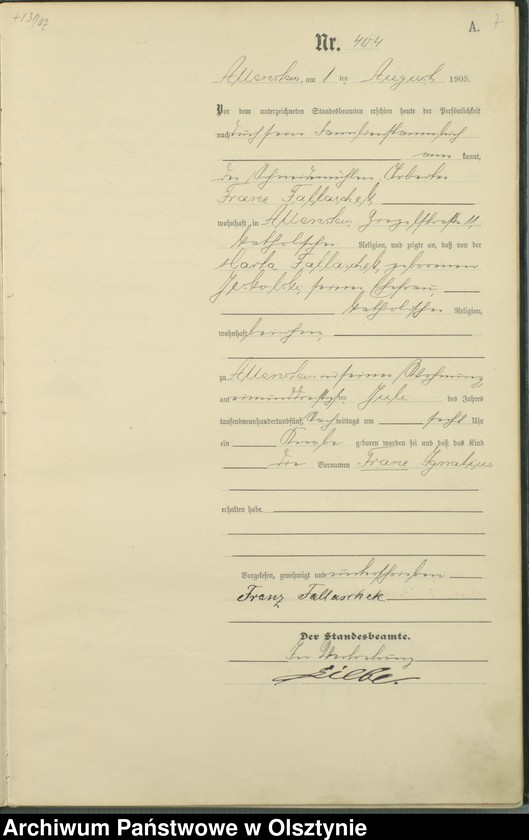 A. 7
Nr. 404
Allenstein, am 1 ten August 1905.
Vor dem unterzeichneten Standesbeamten erschien heute der Persönlichkeit
nach durch sein Familienstammbuch
anerkannt,
der Schneidemühlen Arbeiter
Franz Fallaschek,
wohnhaft in Allenstein
katholischer Religion, und zeigte an, daß von der
Marta Fallaschek, geborenen
seiner Ehefrau,
katholischer Religion,
wohnhaft bei ihm,
zu Allenstein in seiner Wohnung,
am einunddreißigsten Juli des Jahres
tausendneunhundertundfünf, Nachmittags um sechs Uhr
ein Knabe geboren worden sei und daß das Kind
die Vornamen Franz Ignatius
erhalten habe.
Vorgelesen, genehmigt und unterschrieben
Franz Fallaschek
Der Standesbeamte.
In Vertretung
Archiwum Państwowe w Olsztynie